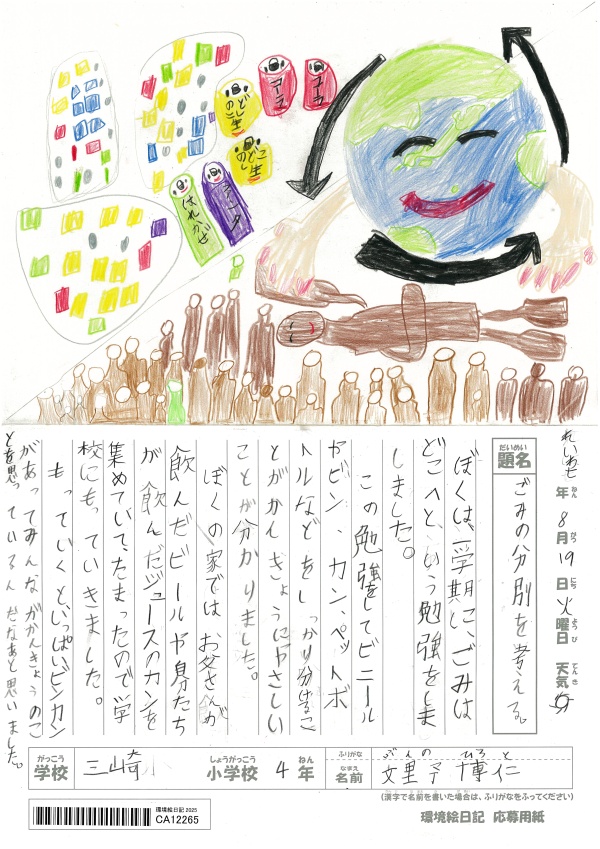 コーラ
コーラ
のどごし生
のどごし生
ファンタ
はれかぜ
れいわ七年8月19日火曜日 天気
ねん がつ にち ようび てんき
だいめい
題名
ごみの分別を考える。
ぼくは、一学期に、ごみは
どこへと、いう勉強をしま
しました。
この勉強をしてビニール
やビン、カン、ペットボ
トルなどをしっかり分るこ
とがかんきょうにやさしい
ことが分かりました。
ぼくの家では お父さんが
飲んだビールや自分たち
が飲んだジュースのカンを
集めていて、たまったので学
校にもっていきました。
もっていくといっぱいビンカン
があってみんながかんきょうのこ
とを思っているんだなあと思いました。
がっこう しょうがっこう ねん
学校 三崎 小学校 4年
ふりがな ぶんの ひろと
なまえ
名前 野 博仁
(漢字で名前を書いた場合は、ふりがなをふってください)
環境絵日記 2025
CA12265
環境絵日記 応募用紙